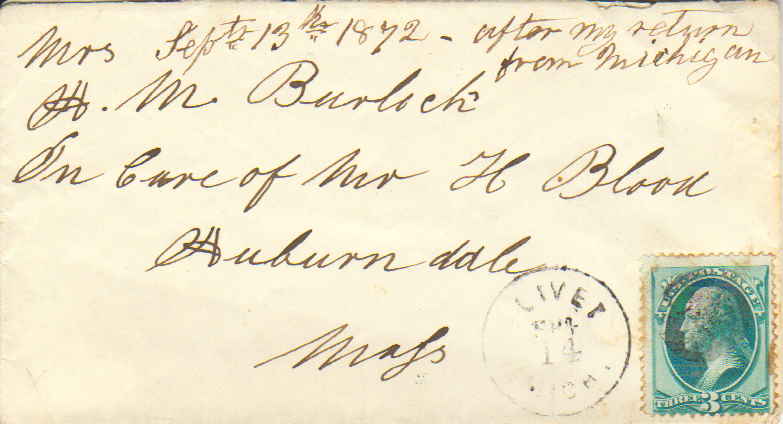 Septr 13th 1872 - after my return
from Michigan
Mrs
H. M. Burlock
In Care of Mr H Blood
Auburndale
Mass
OLIVET
SEP
14
MICH.
U.S. POSTAGE
THREE 3 CENTS